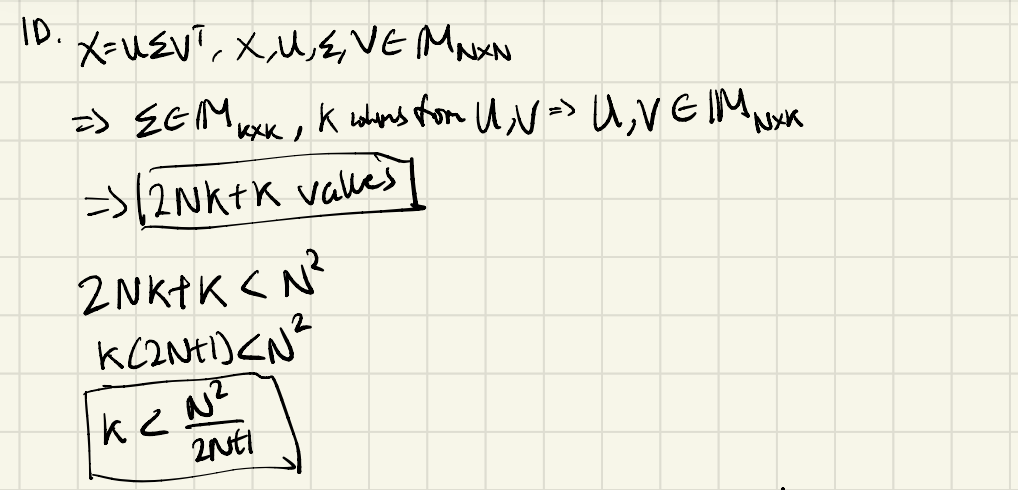 1D. X=UΣVᵀ, X,U,Σ,V∈M_N×N
=> Σ∈M_K×K, K from U,V => U,V∈M_N×K
=> 2NK+K values
2NK+K < N²
K(2N+1)<N²
K < N²/2N+1